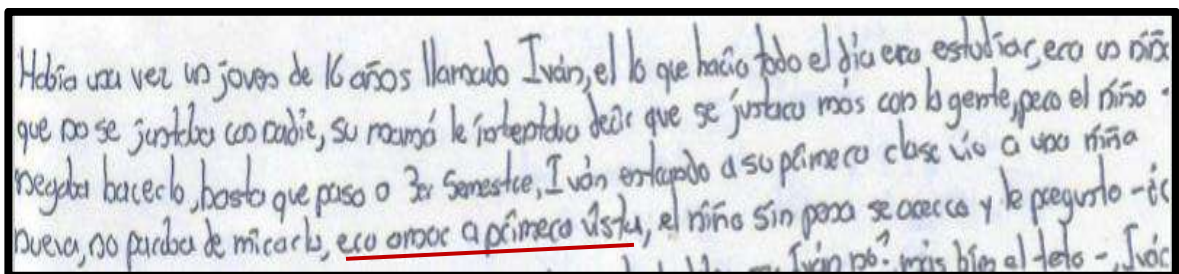 Había una vez un joven de 16 años llamado Iván, el lo que hacía todo el día era estudiar, era un niño
que no se juntaba con nadie, su mamá le intentaba decir que se juntara más con la gente, pero el niño
negaba hacerlo, hasta que paso a 3er Semestre, Iván entrando a su primera clase vio a una niña
nueva, no paraba de mirarla, era amor a primera vista, el niño sin pena se acerco y le pregunto -¿
Iván no? más bien el teto -, Iván